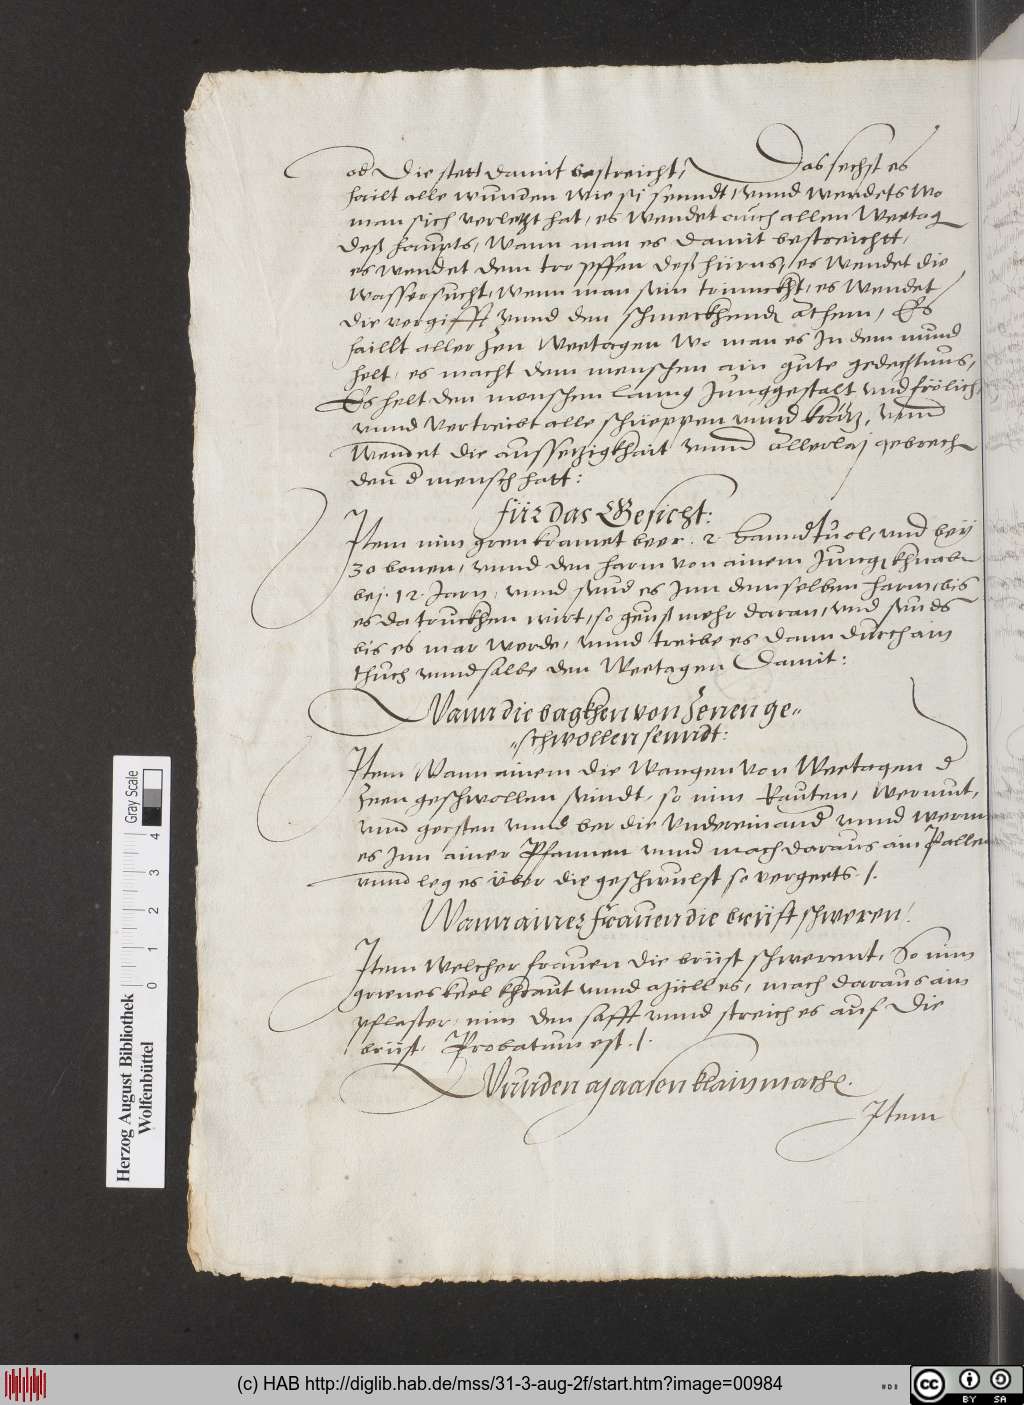 od die stett damit bestreicht, Das sechst es
hailt alle wunden wie si senndt, unnd wendets wo
man sich verletzt hat, es wendet auch allen Weetag
deß haupts, wann man es damit bestreichtt,
es wendet dem tropffen deß hürns, es wendet die
wassersucht, wenn man sein trinnckht, es wendet
die vergifft unnd den schmeckhendn athem, Es
haillt aller Zen Weetagen wo man es In dem mund
helt, es macht dem menschen ain gute gedechtnus,
Es helt den menschen lanng Junggestalt und frölich,
unnd vertreibt alle schüeppen unnd krätz, unnd
Wendet die aussetzigkhait unnd allerlaj gebrech
den d mensch hatt:
für das Gesicht:
Item nim gren kramet beer. 2. hanndtuol, und beÿ
30 bonen, unnd den harm von ainem Jungen khnaben
bej. 12. Jarn, unnd seud es Inn demselben harm, bis
es da truckhen wirt, so geuß mehr daran, und seuds
bis es mar werde, unnd treibe es dann durch ain
thuch unnd salbe den Weetagen Damit:
Wann die bagkhen von Zenen ge„
„schwollen senndt:
Item Wann ainem die Wangen von Weetagen d
Zeen geschwollen seindt, so nim Rauten, wermut,
unnd gersten unnd ber die Undereinand unnd werm
es Inn ainer Pfannen unnd mach daraus ain Pallen
unnd leg es über die geschwulst so vergeets ./.
Wann ainer Frauen die brüst schweren/.
Item welcher frauen die brüst schwerent, So nim
grienes keel khraut unnd azüll es, mach daraus ain
pflaster, nim den safft unnd streich es auf die
brüst. Probatum est ./.
Wunden azaasen klain machen.
Item
Herzog August Bibliothek
Wolfenbüttel
Gray Scale
0 1 2 3 4
(c) HAB http://diglib.hab.de/mss/31-3-aug-2f/start.htm?image=00984
cc BY SA